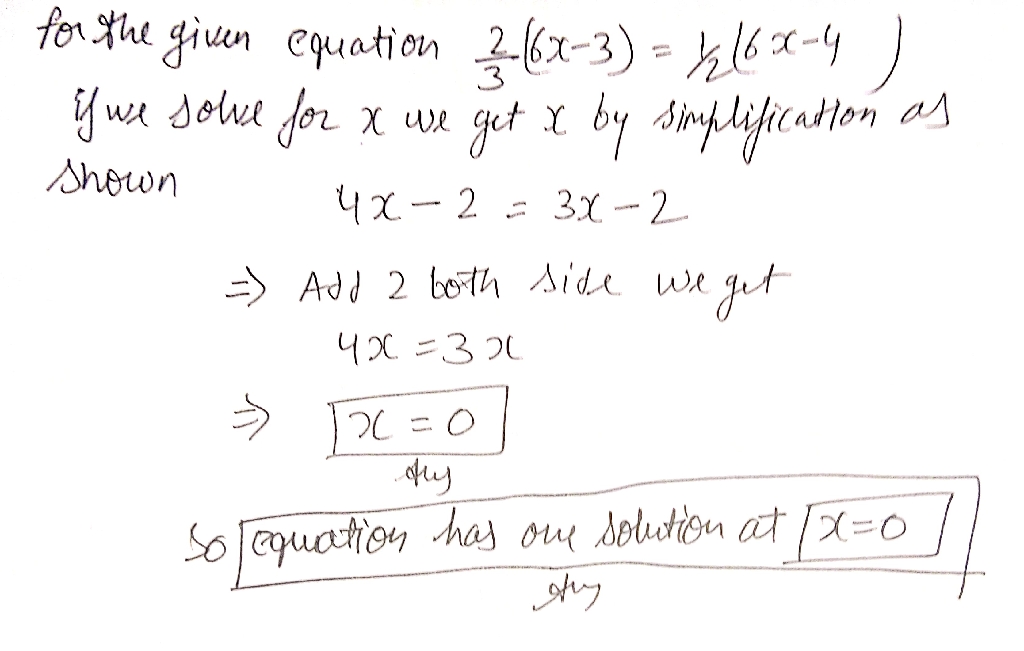 for the given equation 2/3 (6x-3) = 1/2 (6x-4)
if we solve for x we get x by simplification as
shown
4x - 2 = 3x - 2
⇒ Add 2 both side we get
4x = 3x
⇒ x = 0
Ans
So equation has one solution at x=0
Ans